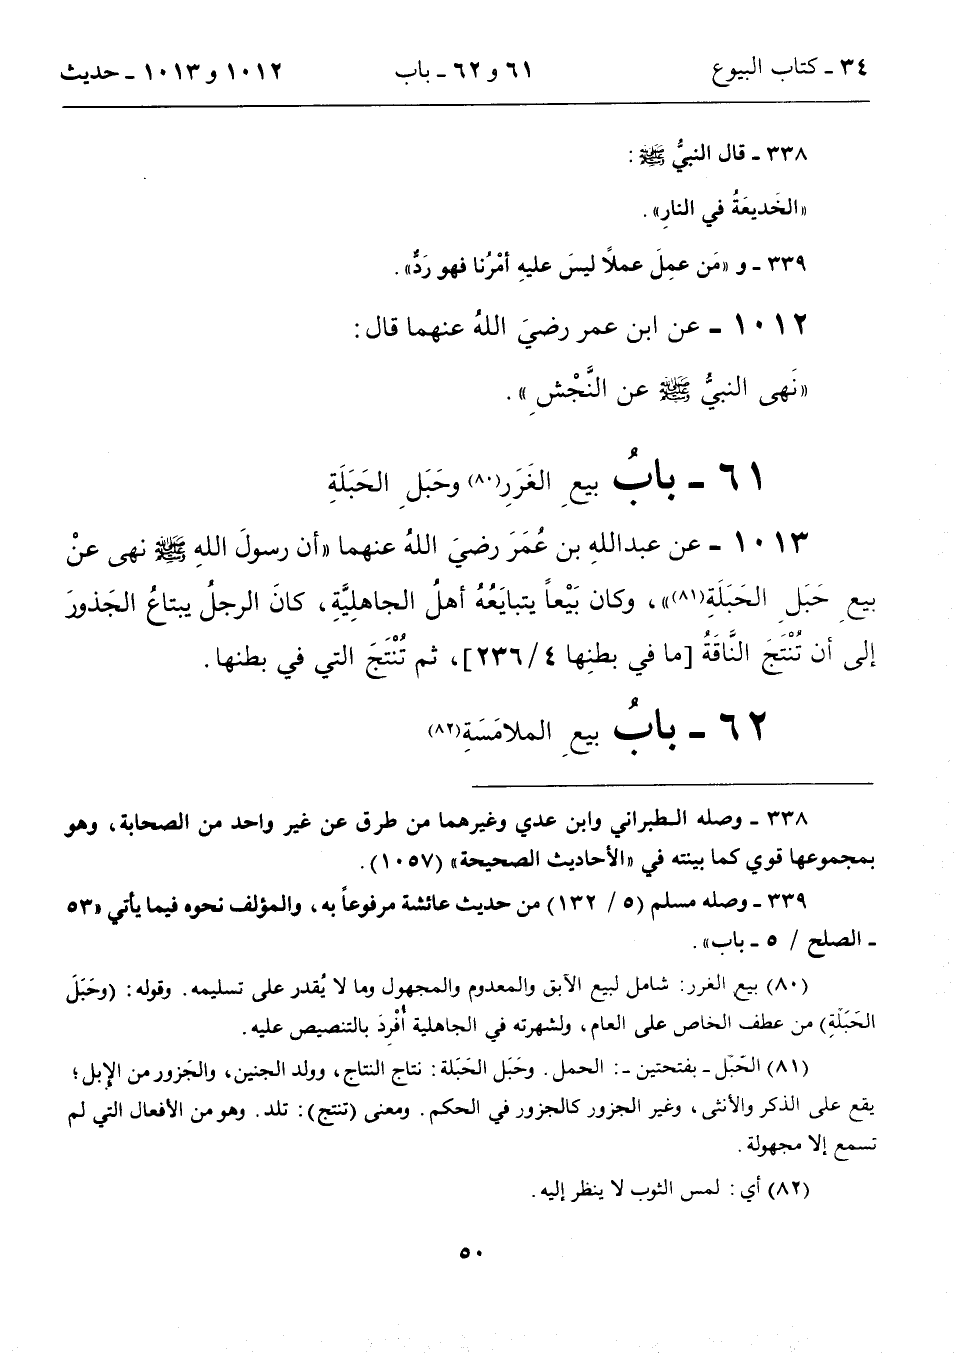 ٣٤ ـ كتاب البيوع ٦١ و ٦٢ ـ باب ١٠١٢ و ١٠١٣ ـ حديث
٣٣٨ ـ قال النبيُّ ﷺ :
«الخَديعَةُ في النارِ» .
٣٣٩ ـ و «مَن عمِلَ عملاً ليسَ عليهِ أمْرُنا فهو رَدٌّ» .
١٠١٢ ـ عن ابن عمر رضيَ اللهُ عنهما قال :
«نَهى النبيُّ ﷺ عن النَّجْشِ» .
٦١ ـ بابُ بيعِ الغَرَرِ(٨٠) وحَبَلِ الحَبَلَةِ
١٠١٣ ـ عن عبداللهِ بن عُمَرَ رضيَ اللهُ عنهما «أن رسولَ اللهِ ﷺ نهى عنْ
بيعِ حَبَلِ الحَبَلَةِ(٨١)» ، وكان بَيْعاً يتبايَعُهُ أهلُ الجاهليَّةِ ، كانَ الرجلُ يبتاعُ الجَذورَ
إلى أن تُنْتَجَ النَّاقَةُ [ما في بطنِها ٤/ ٢٣٦] ، ثم تُنْتَجَ التي في بطنها .
٦٢ ـ بابُ بيعِ الملامَسَةِ(٨٢)
٣٣٨ ـ وصله الطبراني وابن عدي وغيرهما من طرق عن غير واحد من الصحابة ، وهو
بمجموعها قوي كما بينته في «الأحاديث الصحيحة» (١٠٥٧) .
٣٣٩ ـ وصله مسلم (٥ / ١٣٢) من حديث عائشة مرفوعاً به ، والمؤلف نحوه فيما يأتي «٥٣
ـ الصلح / ٥ ـ باب» .
(٨٠) بيع الغرر : شامل لبيع الآبق والمعدوم والمجهول وما لا يُقدر على تسليمه . وقوله : (وحَبَلَ
الحَبَلَةِ) من عطف الخاص على العام ، ولشهرته في الجاهلية أُفْرِدَ بالتنصيص عليه .
(٨١) الحَبَل ـ بفتحتين ـ : الحمل . وحَبَل الحَبَلة : نتاج النتاج ، وولد الجنين ، والجَزور من الإِبل ؛
يقع على الذكر والأنثى ، وغير الجزور كالجزور في الحكم . ومعنى (تنتج) : تلد . وهو من الأفعال التي لم
تسمع إلا مجهولة .
(٨٢) أي : لمس الثوب لا ينظر إليه .
٥٠